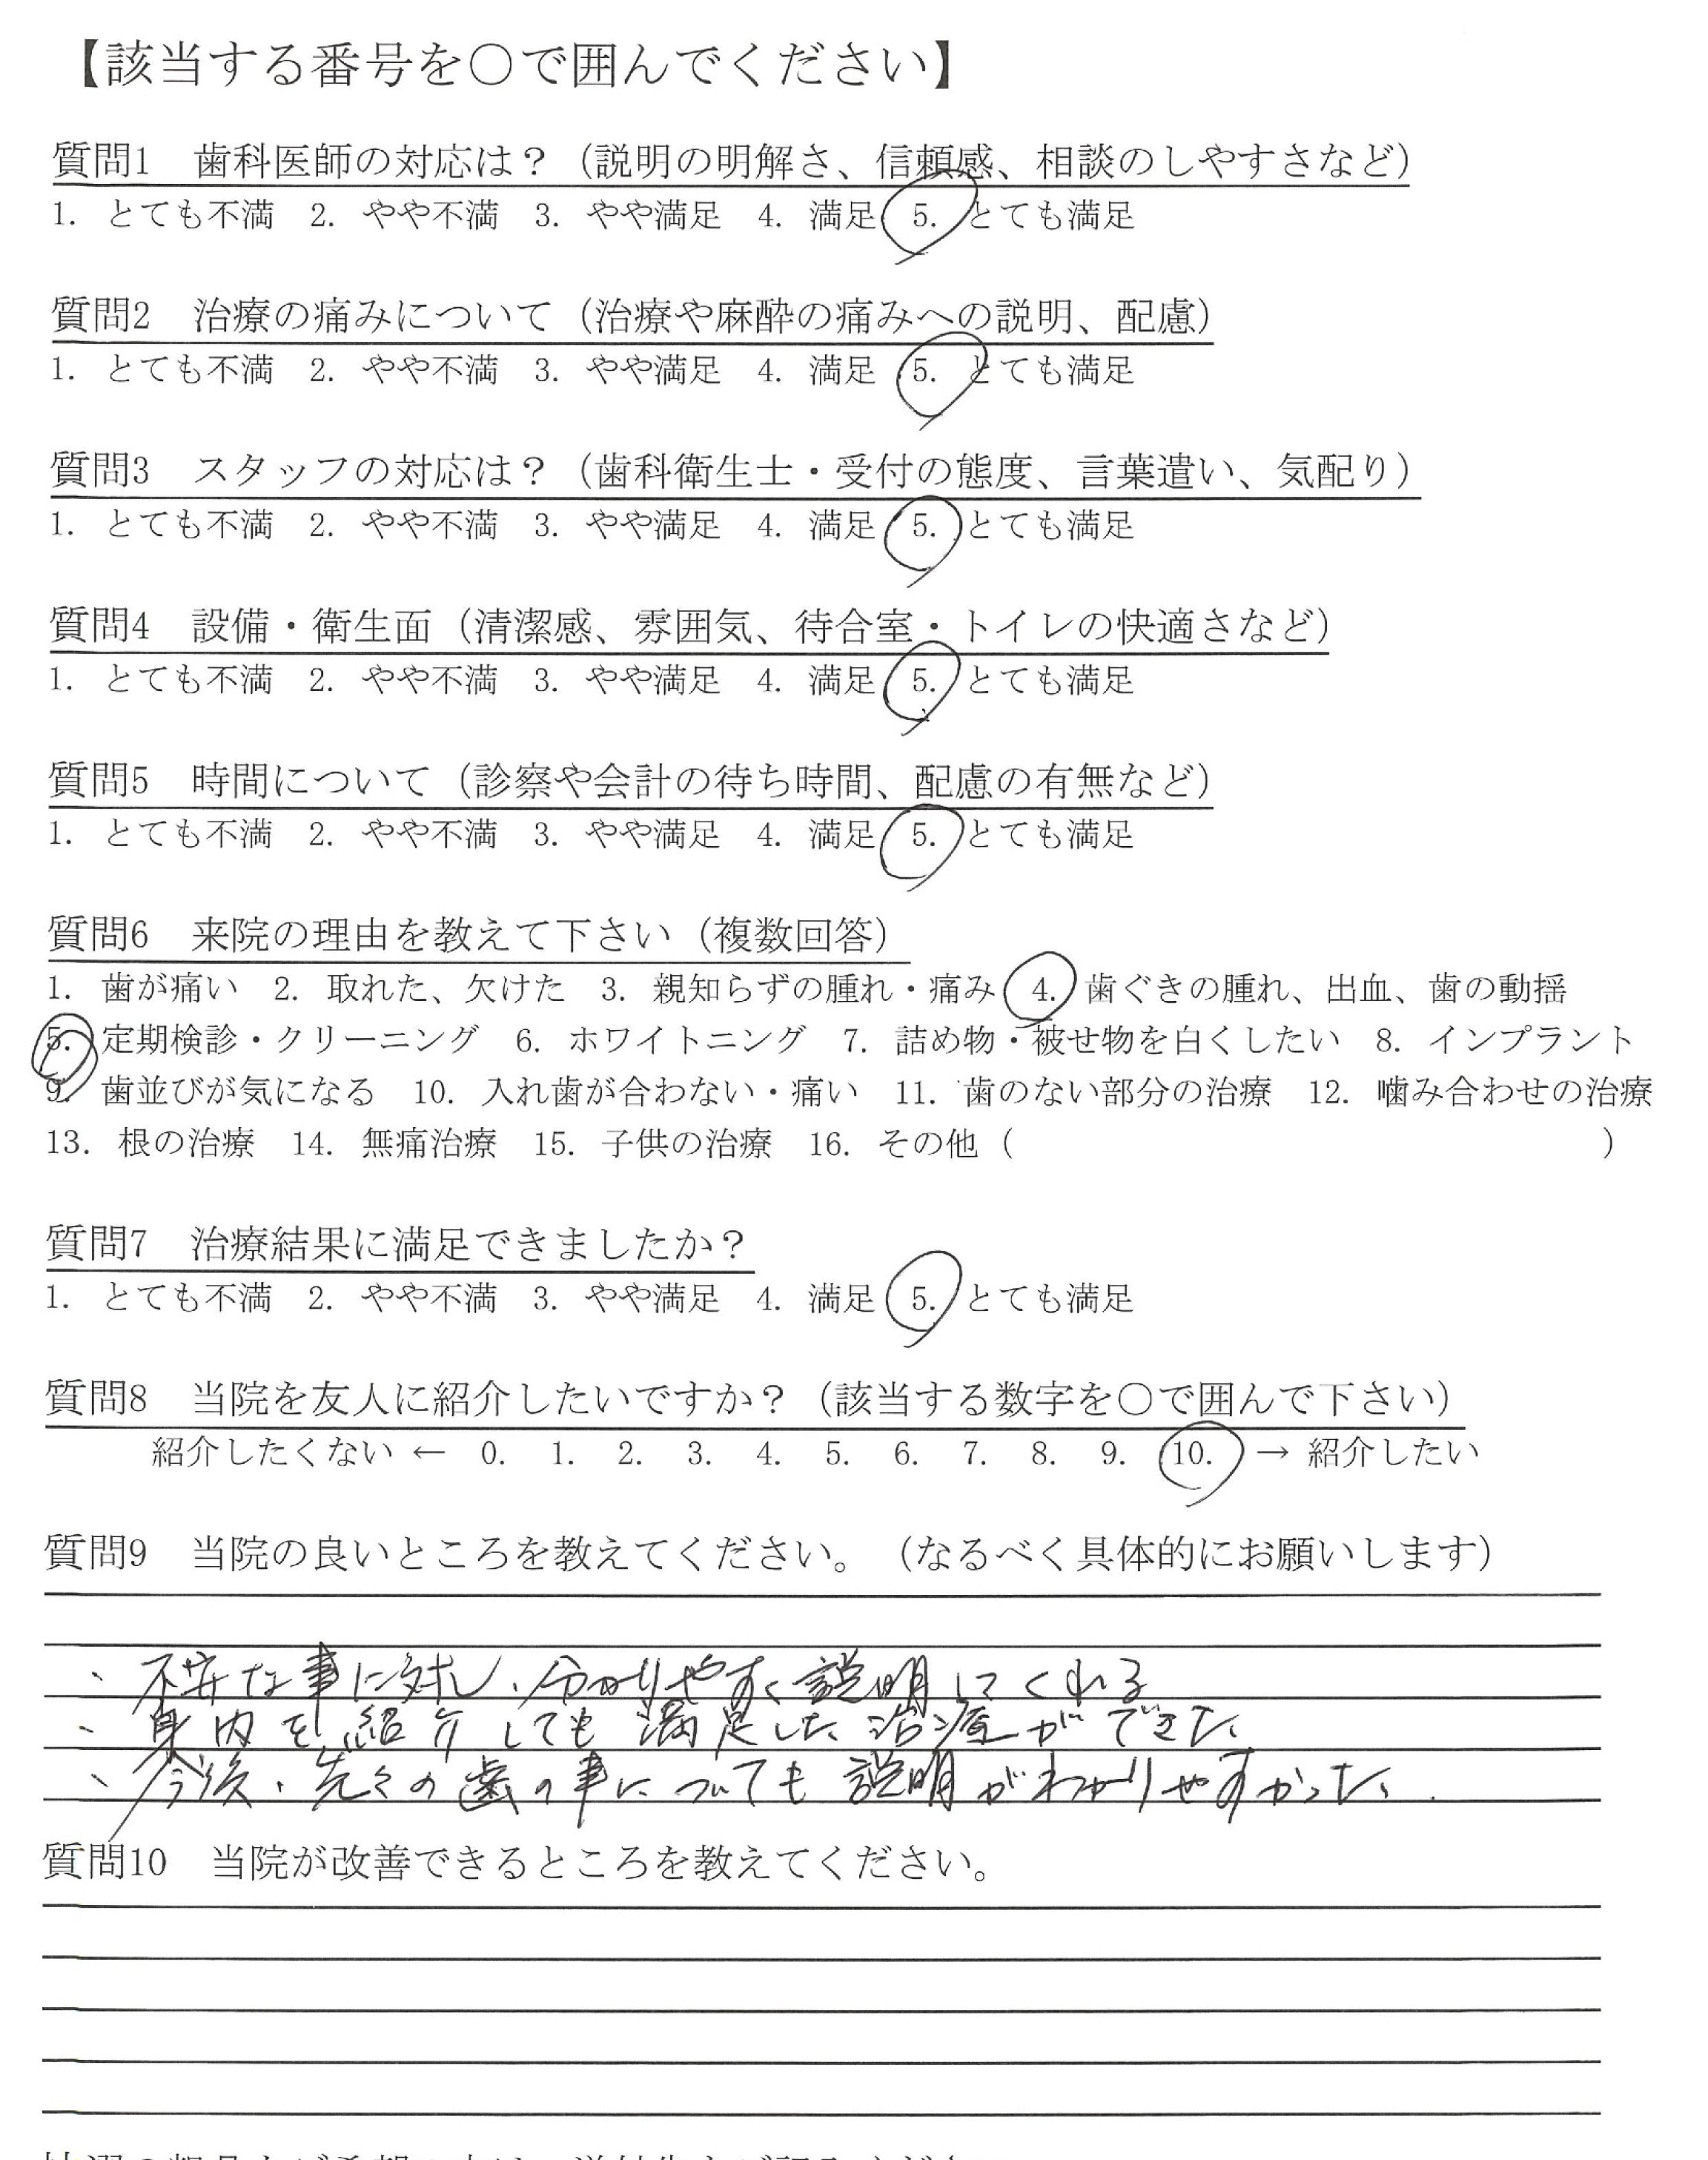 【該当する番号を〇で囲んでください】
質問1　歯科医師の対応は？（説明の明解さ、信頼感、相談のしやすさなど）
1. とても不満　2. やや不満　3. やや満足　4. 満足　5. とても満足
質問2　治療の痛みについて（治療や麻酔の痛みへの説明、配慮）
1. とても不満　2. やや不満　3. やや満足　4. 満足　5. とても満足
質問3　スタッフの対応は？（歯科衛生士・受付の態度、言葉遣い、気配り）
1. とても不満　2. やや不満　3. やや満足　4. 満足　5. とても満足
質問4　設備・衛生面（清潔感、雰囲気、待合室・トイレの快適さなど）
1. とても不満　2. やや不満　3. やや満足　4. 満足　5. とても満足
質問5　時間について（診察や会計の待ち時間、配慮の有無など）
1. とても不満　2. やや不満　3. やや満足　4. 満足　5. とても満足
質問6　来院の理由を教えて下さい（複数回答）
1. 歯が痛い　2. 取れた、欠けた　3. 親知らずの腫れ・痛み　4. 歯ぐきの腫れ、出血、歯の動揺
5. 定期検診・クリーニング　6. ホワイトニング　7. 詰め物・被せ物を白くしたい　8. インプラント
9. 歯並びが気になる　10. 入れ歯が合わない・痛い　11. 歯のない部分の治療　12. 噛み合わせの治療
13. 根の治療　14. 無痛治療　15. 子供の治療　16. その他（　　　　　　　　　）
質問7　治療結果に満足できましたか？
1. とても不満　2. やや不満　3. やや満足　4. 満足　5. とても満足
質問8　当院を友人に紹介したいですか？（該当する数字を〇で囲んで下さい）
紹介したくない ← 0. 1. 2. 3. 4. 5. 6. 7. 8. 9. 10. → 紹介したい
質問9　当院の良いところを教えてください。（なるべく具体的にお願いします）
、不安な事に対し、分かりやすく説明してくれる
、身内を紹介しても満足した治療ができた、
、今後、先々の歯の事についても説明がわかりやすかった、
質問10　当院が改善できるところを教えてください。